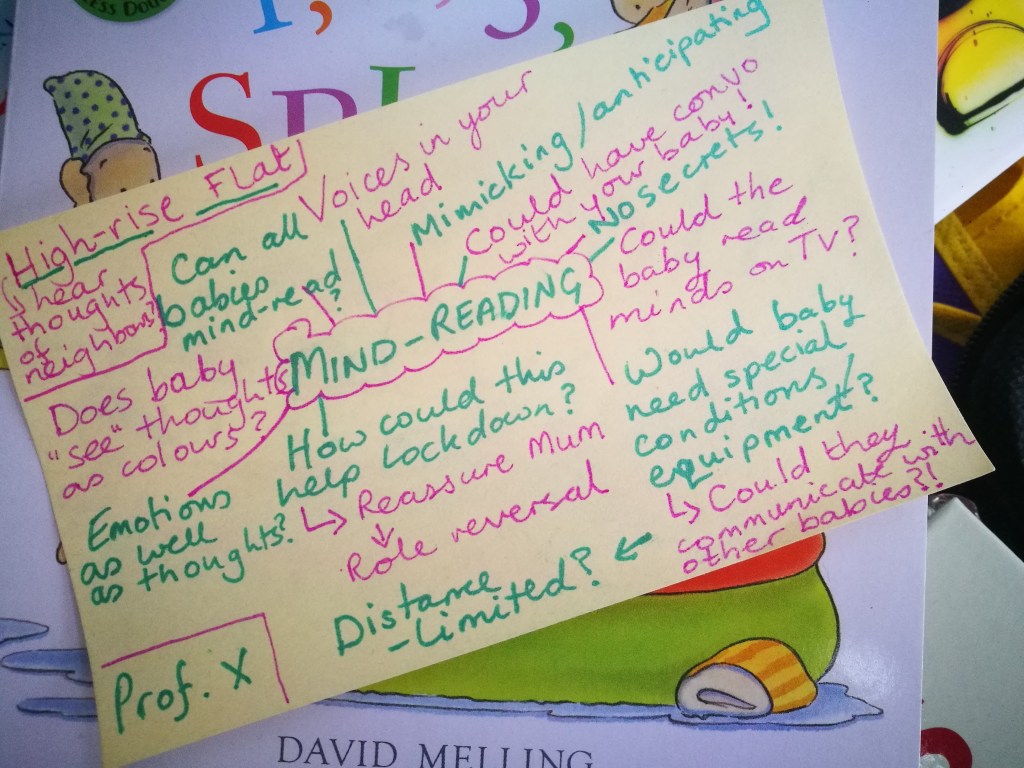 High-rise Flat
↳ hear
thoughts
of
neighbours?
Can all
babies
mind-read
?
Voices in your
head
Mimicking/anticipating
Could have convo
with your baby!
No secrets!
MIND-READING
Could the
baby read
minds on TV?
Does baby
"see" thoughts
as colours?
How could this
help lockdown?
↳ Reassure Mum
↓
Role reversal
Would baby
need special
conditions/
equipment?
↳ Could they
communicate with
other babies?!
Emotions
as well
as thoughts?
Distance ←
-Limited?
Prof. X
DAVID MELLING